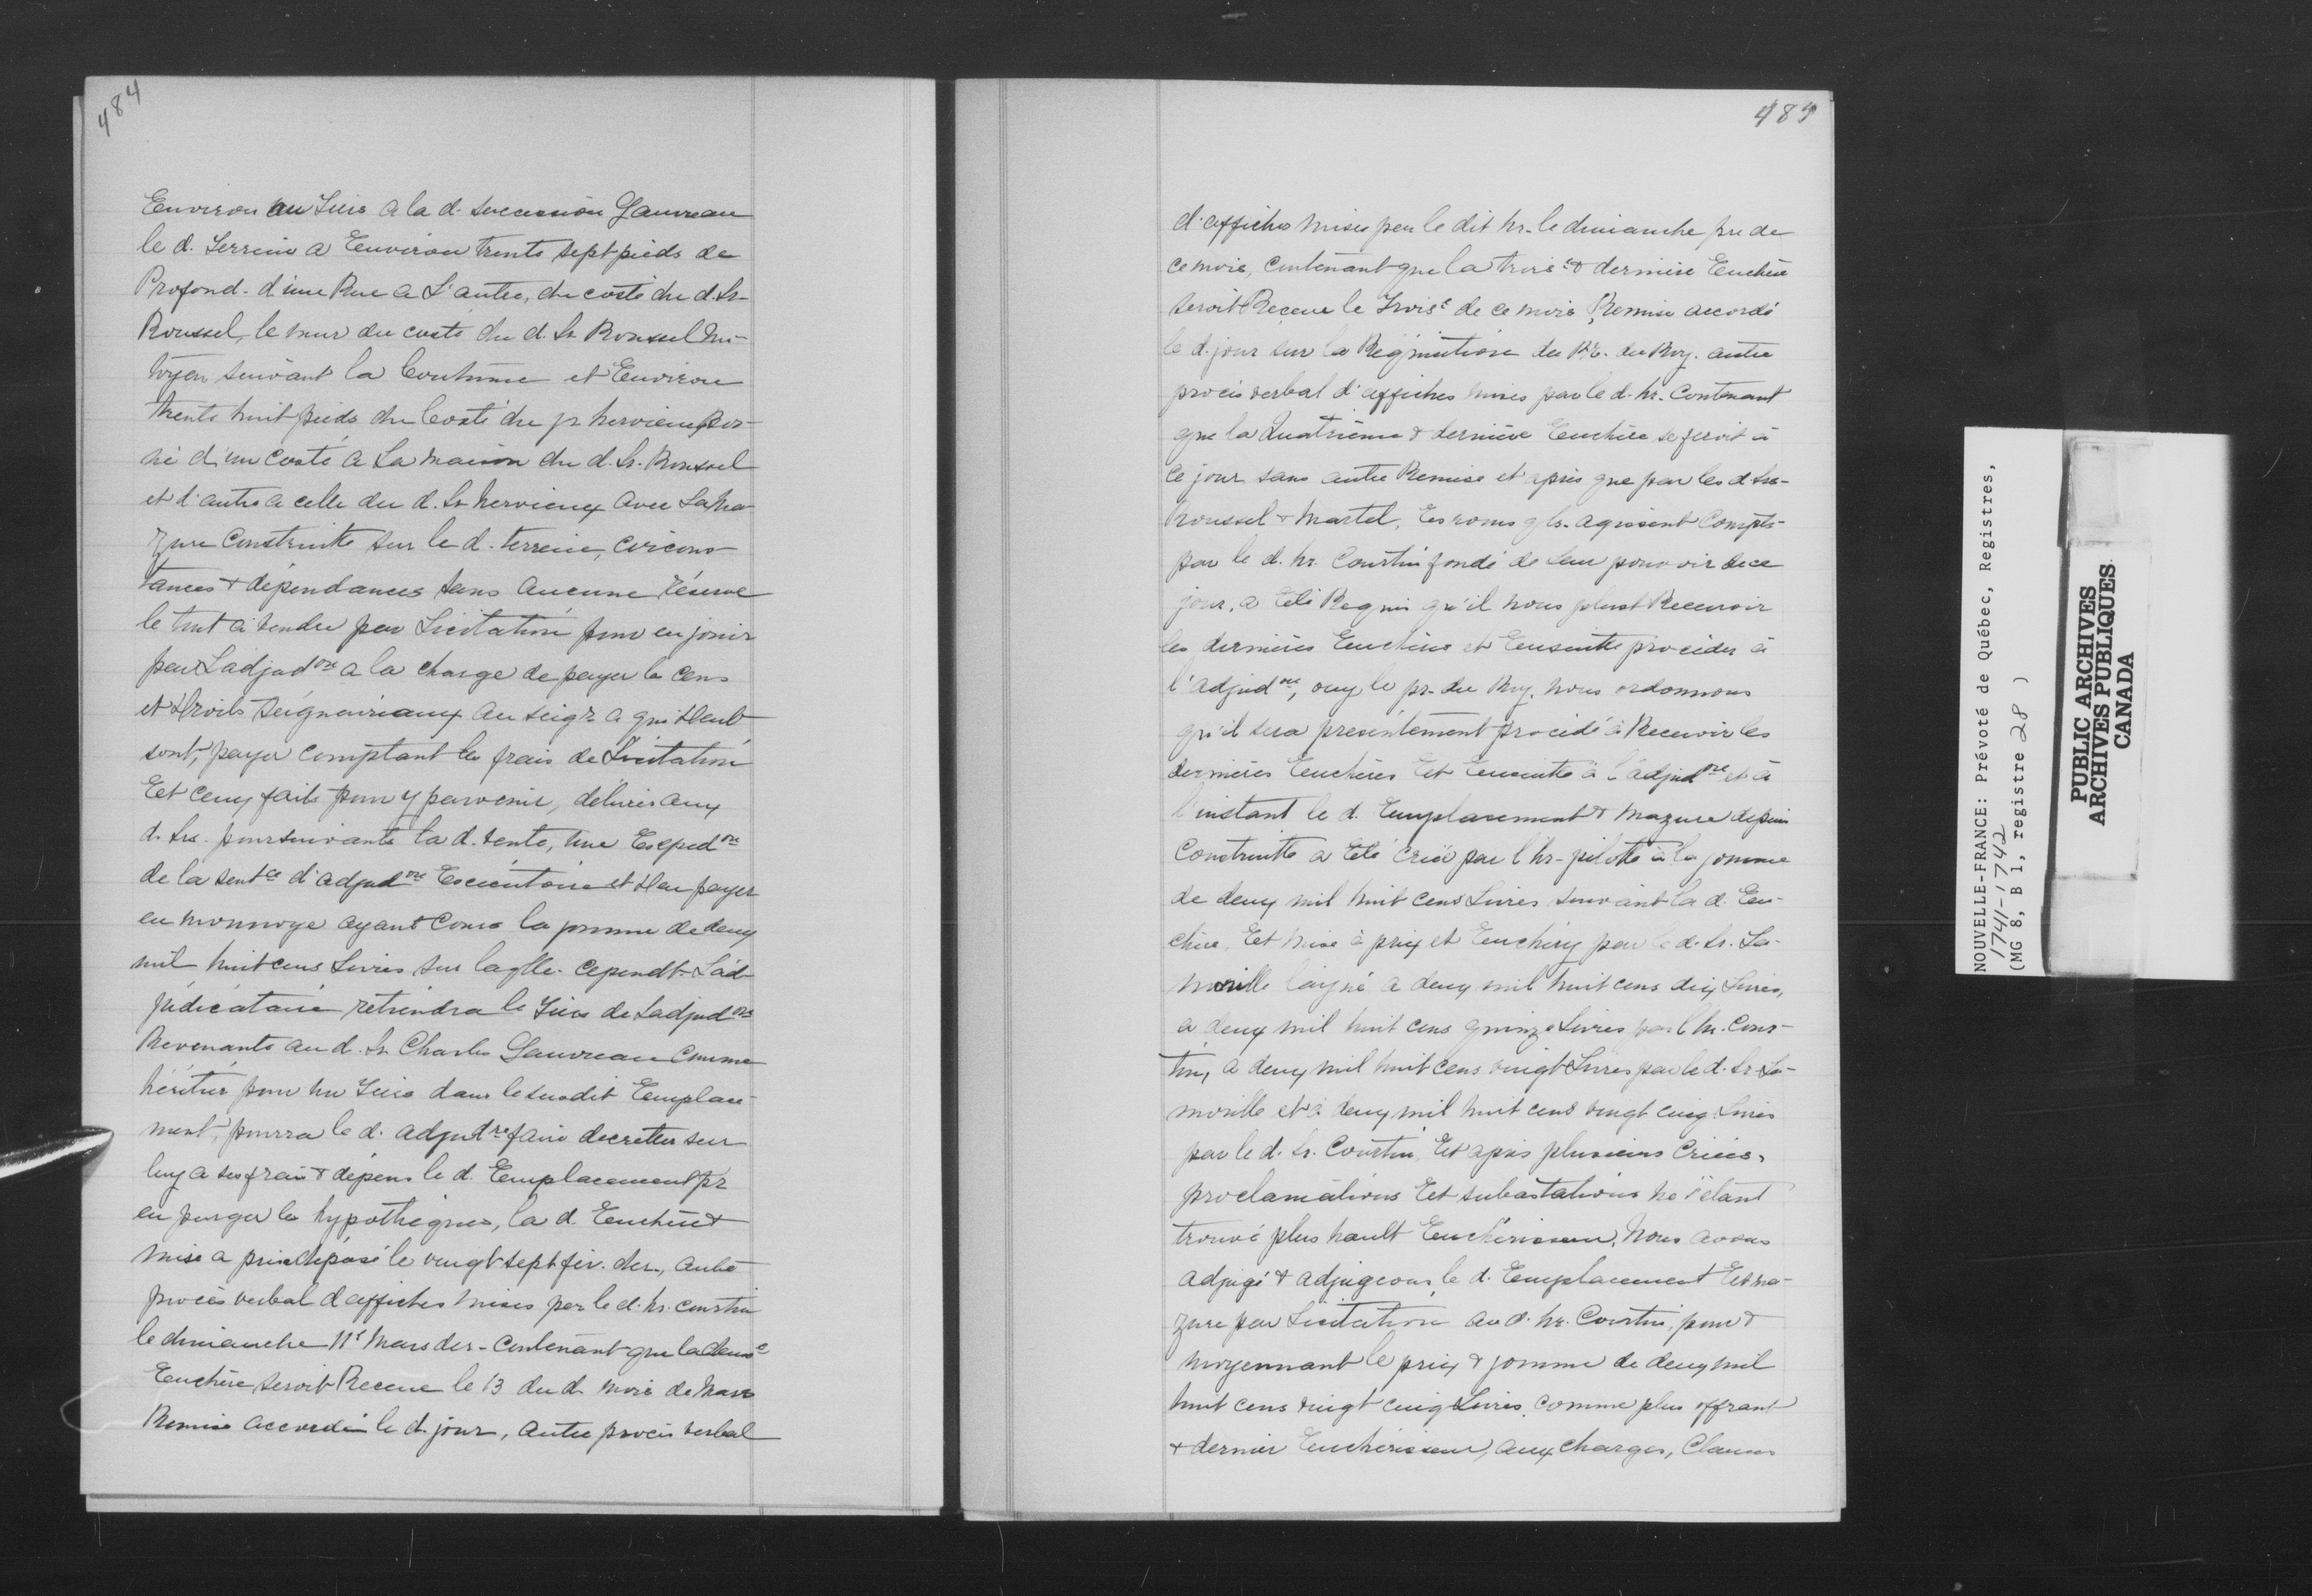 484
Environ un Tiers a la d. succession Gauvreau
le d. Terrein a Environ trente sept pieds de
Profond. d'une Rue a L'autre, du costé du d. Sr.
Roussel, le mur du costé du d. Sr Roussel mi-
toyen suivant la Coutume et Environ
trente huit pieds du Costé du Sr hervieux, Bor-
né d'un costé a La maison du d. Sr. Roussel
et d'autre a celle du d. Sr hervieux avec La ma-
zure Construitte sur le d. terrein, circons-
tances & dépendances sans aucune réserve
le tout à vendre par Licitation pour en jouir
par Ladjudre a la charge de payer le Cens
et droits Seigneuriaux au seigr a qui deub
sont, payer comptant les frais de Licitation
Eet ceux faits pour y parvenir, délivrer aux
d. Srs. poursuivants la d. vente, une Expedon
de la sentce d'adjudon Executoire et d'en payer
en monnoye ayant Cours la somme de deux
mil huit cens Livres sur laqlle. Cependt. L'ad-
judicataire retiendra le Tiers de Ladjudon
Revenante au d. Sr Charles Gauvreau Comme
héritier pour un Tiers dans le susdit Emplace-
ment, pourra le d. adjudre faire decretter sur
luy a ses frais & dépens le d. Emplacement pr
en purger les hypothéques, la d. Enchère &
mise a prix déposé le vingt sept fév. der., autre
procès verbal d'affiches mises par le d. hr. Courtin
le dimanche 11e Mars der. Contenant que la deuxe
Enchère seroit Receue le 13 du d. mois de Mars
Remise accordée le d. jour, autre procès verbal
485
d'affiches mises par le dit hr. le dimanche pre de
ce mois, Contenant que la troise & dernière Enchère
seroit Receue le Troise de ce mois, Remise accordé
le d. jour sur la Réquisition du Pr. du Roy. autre
procès verbal d'affiches mises par le d. hr. Contenant
que la Quatrième & dernière Enchère se feroit à
ce jour sans autre Remise et après que par les d Srs.
Roussel & Martel, Es noms qls. agissent Compts.
par le d. hr. Courtin fondé de leur pouvoir de ce
jour, a Eté Requis qu'il nous plust Recevoir
les dernières Enchères et Ensuitte procéder à
l'adjudon, ouy le pr. du Roy. nous ordonnons
qu'il sera presentement procédé à Recevoir les
dernières Enchères Eet Ensuitte à l'adjudon et à
l'instant le d. Emplacement & mazure dessus
Construitte a Eté crié par l'hr. pilotte à la somme
de deux mil huit cens Livres suivant la d. En-
chère, Eet mise à prix et Enchéry par le d. Sr. La-
morille l'aisné a deux mil huit cens dix Livres,
a deux mil huit cens quinze Livres par l'hr. Cour-
tin, a deux mil huit cens vingt Livres par le d. Sr La-
morille et à deux mil huit cens vingt cinq Livres
par le d. Sr. Courtin, Et après plusieurs Criées,
proclamations Eet subastations ne s'étant
trouvé plus hault Enchérisseur, Nous avons
adjugé & adjugeons le d. Emplacement Eet ma-
zure par Licitation au d. hr. Courtin, pour &
moyennant le prix & somme de deux mil
huit cens vingt cinq Livres, comme plus offrant
& dernier Enchérisseur, aux charges, Clauses
NOUVELLE-FRANCE: Prévoté de Québec, Registres,
1741-1742
(MG 8, B 1, registre 28 )
PUBLIC ARCHIVES
ARCHIVES PUBLIQUES
CANADA